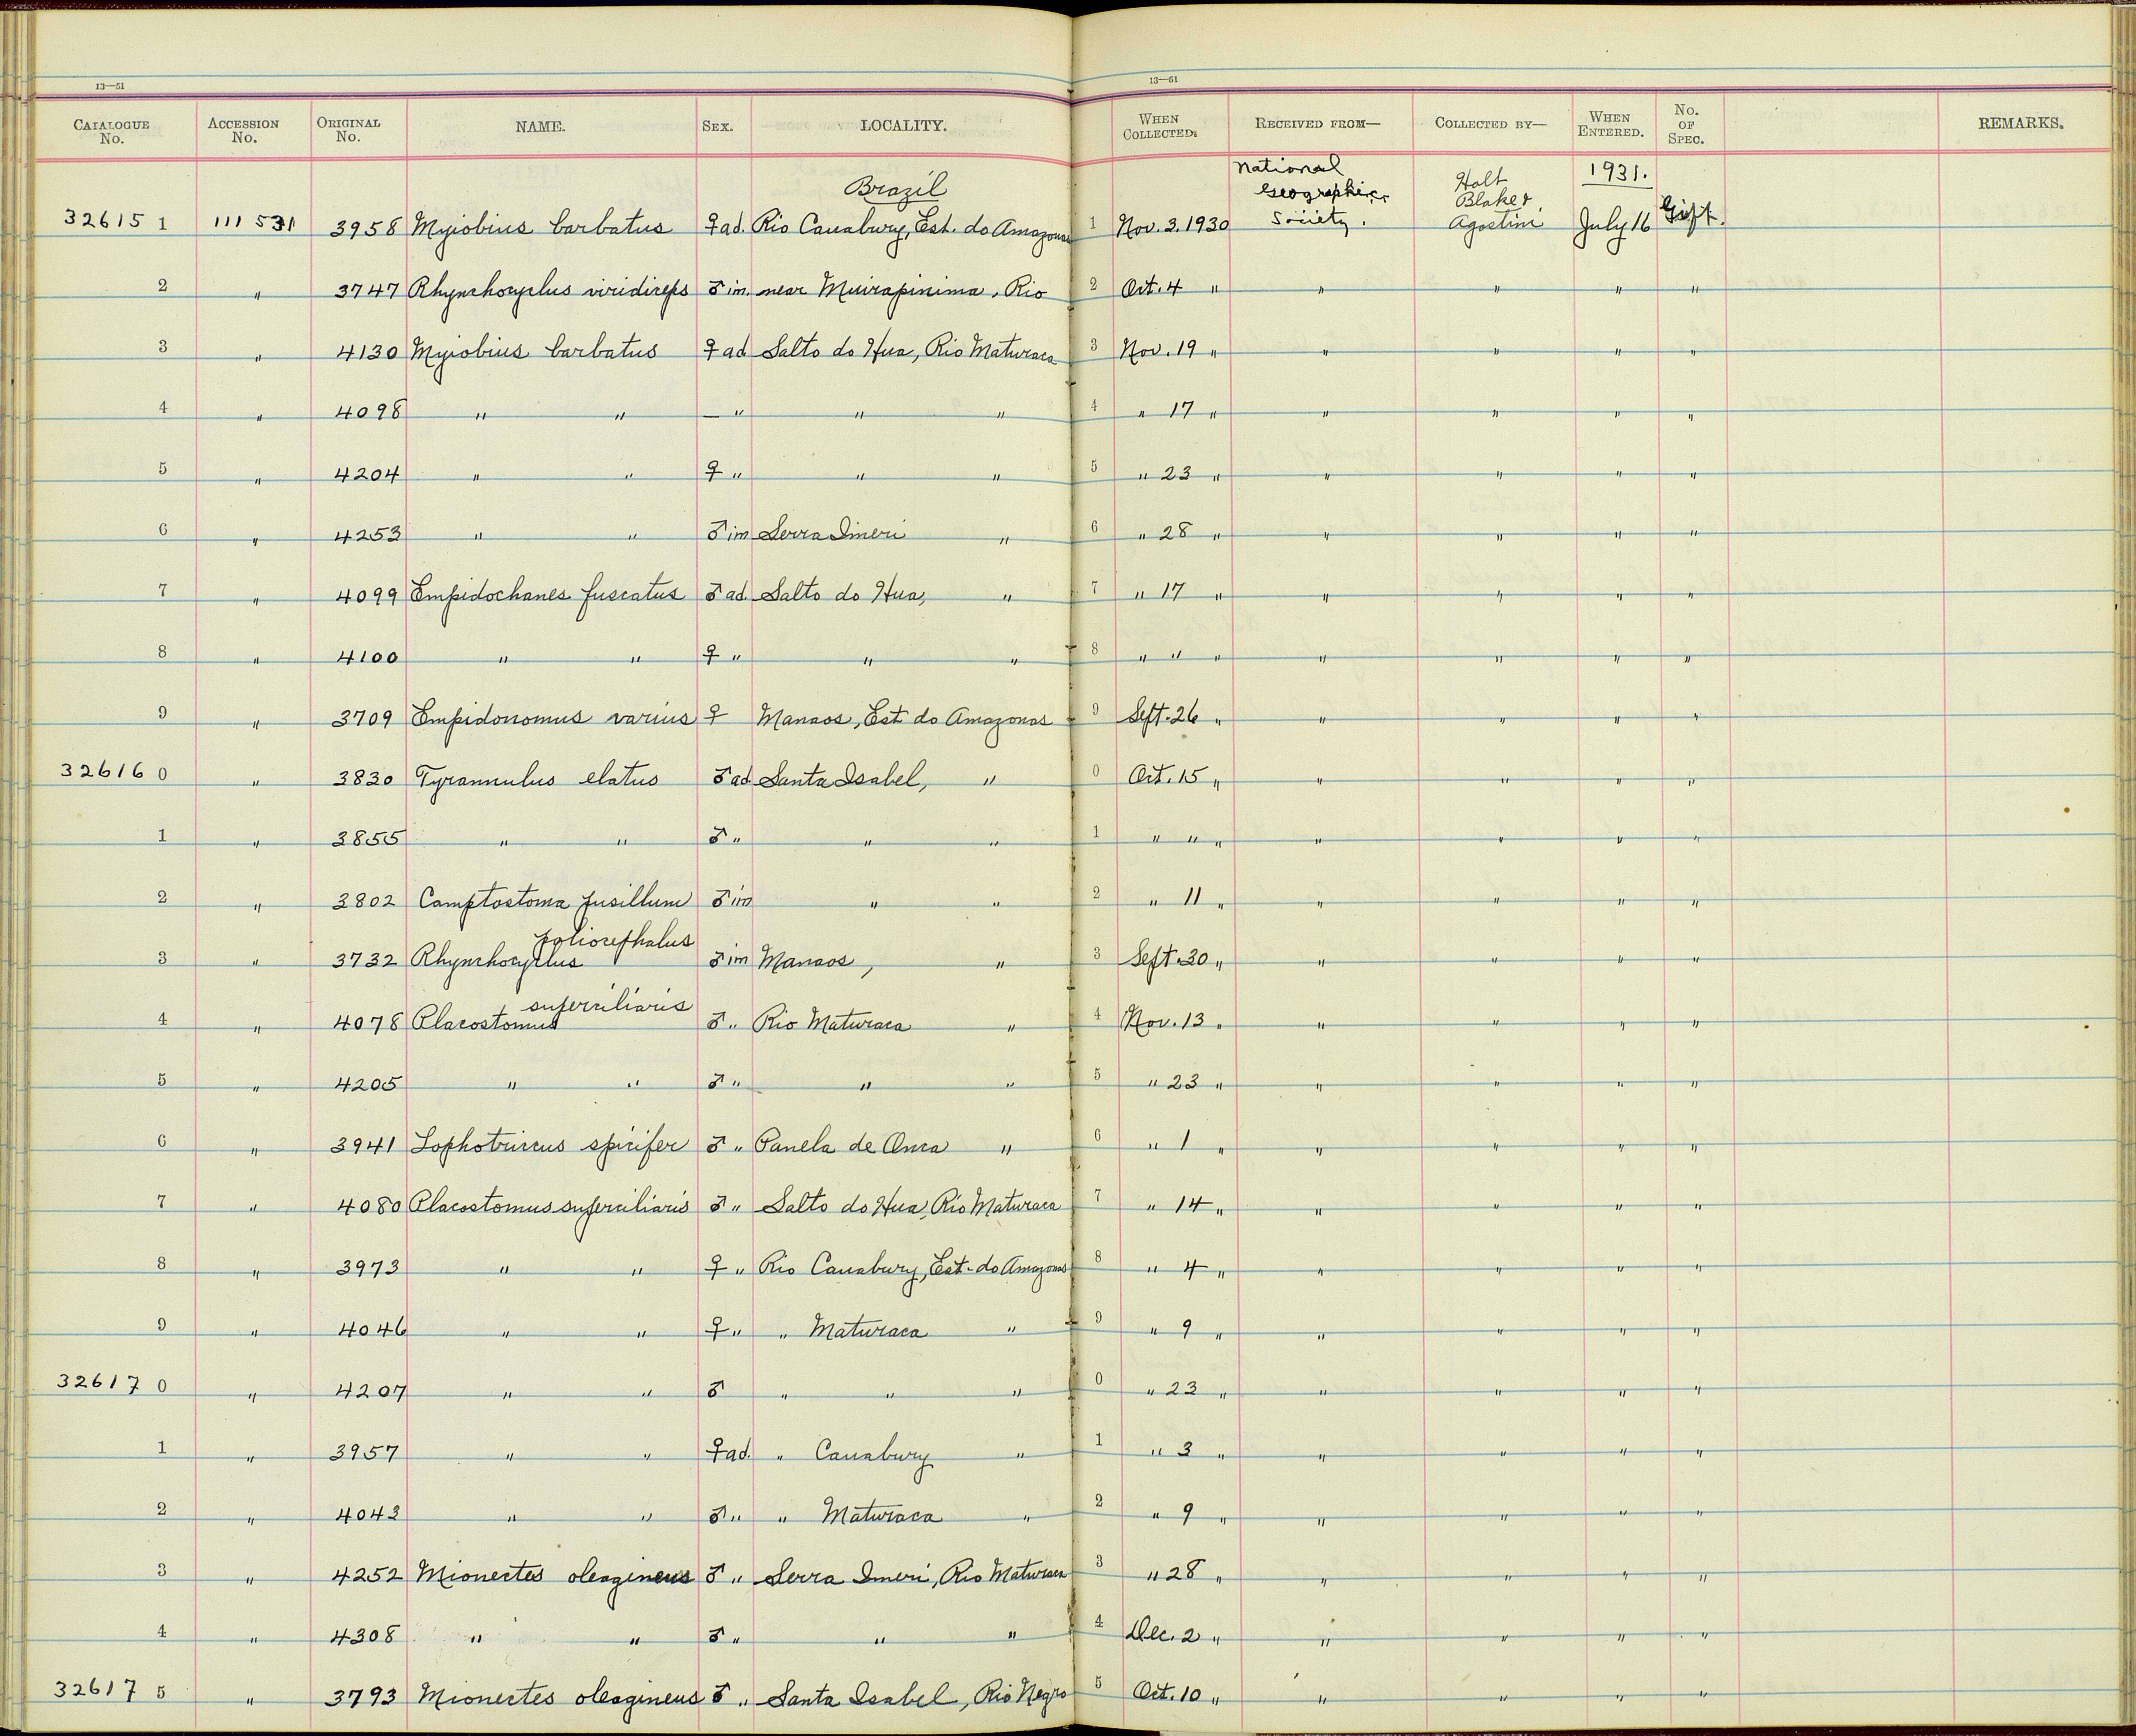 13—51 13—51
CATALOGUE No. ACCESSION No. ORIGINAL No. NAME. SEX. LOCALITY. WHEN COLLECTED. RECEIVED FROM— COLLECTED BY— WHEN ENTERED. No. OF SPEC. REMARKS.
Brazil National Geographic Society. Holt Blake & Agostini 1931.
32615 1 111531 3958 Myiobius barbatus ♀ ad. Rio Cauabury, Est. do Amazonas 1 Nov. 3. 1930 July 16 Gift.
2 " 3747 Rhynchocyclus viridiceps ♂ im. near Muirapinima, Rio 2 Oct. 4 " " " " "
3 " 4130 Myiobius barbatus ♀ ad Salto do Hua, Rio Maturaca 3 Nov. 19 " " " " "
4 " 4098 " " — " " " 4 " 17 " " " " "
5 " 4204 " " ♀ " " " 5 " 23 " " " " "
6 " 4253 " " ♂ im Serra Imeri " 6 " 28 " " " " "
7 " 4099 Empidochanes fuscatus ♂ ad. Salto do Hua, " 7 " 17 " " " " "
8 " 4100 " " ♀ " " " 8 " " " " " " "
9 " 3709 Empidonomus varius ♀ Manaos, Est do Amazonas 9 Sept. 26 " " " " "
32616 0 " 3830 Tyrannulus elatus ♂ ad Santa Isabel, " 0 Oct. 15 " " " " "
1 " 3855 " " ♂ " " " 1 " " " " " " "
2 " 3802 Camptostoma pusillum ♂ im " " 2 " 11 " " " " "
3 " 3732 Rhynchocyclus poliocephalus ♂ im Manaos, " 3 Sept. 30 " " " " "
4 " 4078 Placostomus superciliaris ♂ " Rio Maturaca " 4 Nov. 13 " " " " "
5 " 4205 " " ♂ " " " 5 " 23 " " " " "
6 " 3941 Lophotriccus spicifer ♂ " Panela de Onca " 6 " 1 " " " " "
7 " 4080 Placostomus superciliaris ♂ " Salto do Hua, Rio Maturaca 7 " 14 " " " " "
8 " 3973 " " ♀ " Rio Cauabury, Est. do Amazonas 8 " 4 " " " " "
9 " 4046 " " ♀ " " Maturaca " 9 " 9 " " " " "
32617 0 " 4207 " " ♂ " " " 0 " 23 " " " " "
1 " 3957 " " ♀ ad. " Cauabury " 1 " 3 " " " " "
2 " 4043 " " ♂ " " Maturaca " 2 " 9 " " " " "
3 " 4252 Mionectes oleagineus ♂ " Serra Imeri, Rio Maturaca 3 " 28 " " " " "
4 " 4308 " " ♂ " " " 4 Dec. 2 " " " " "
32617 5 " 3793 Mionectes oleagineus ♂ " Santa Isabel, Rio Negro 5 Oct. 10 " " " " "